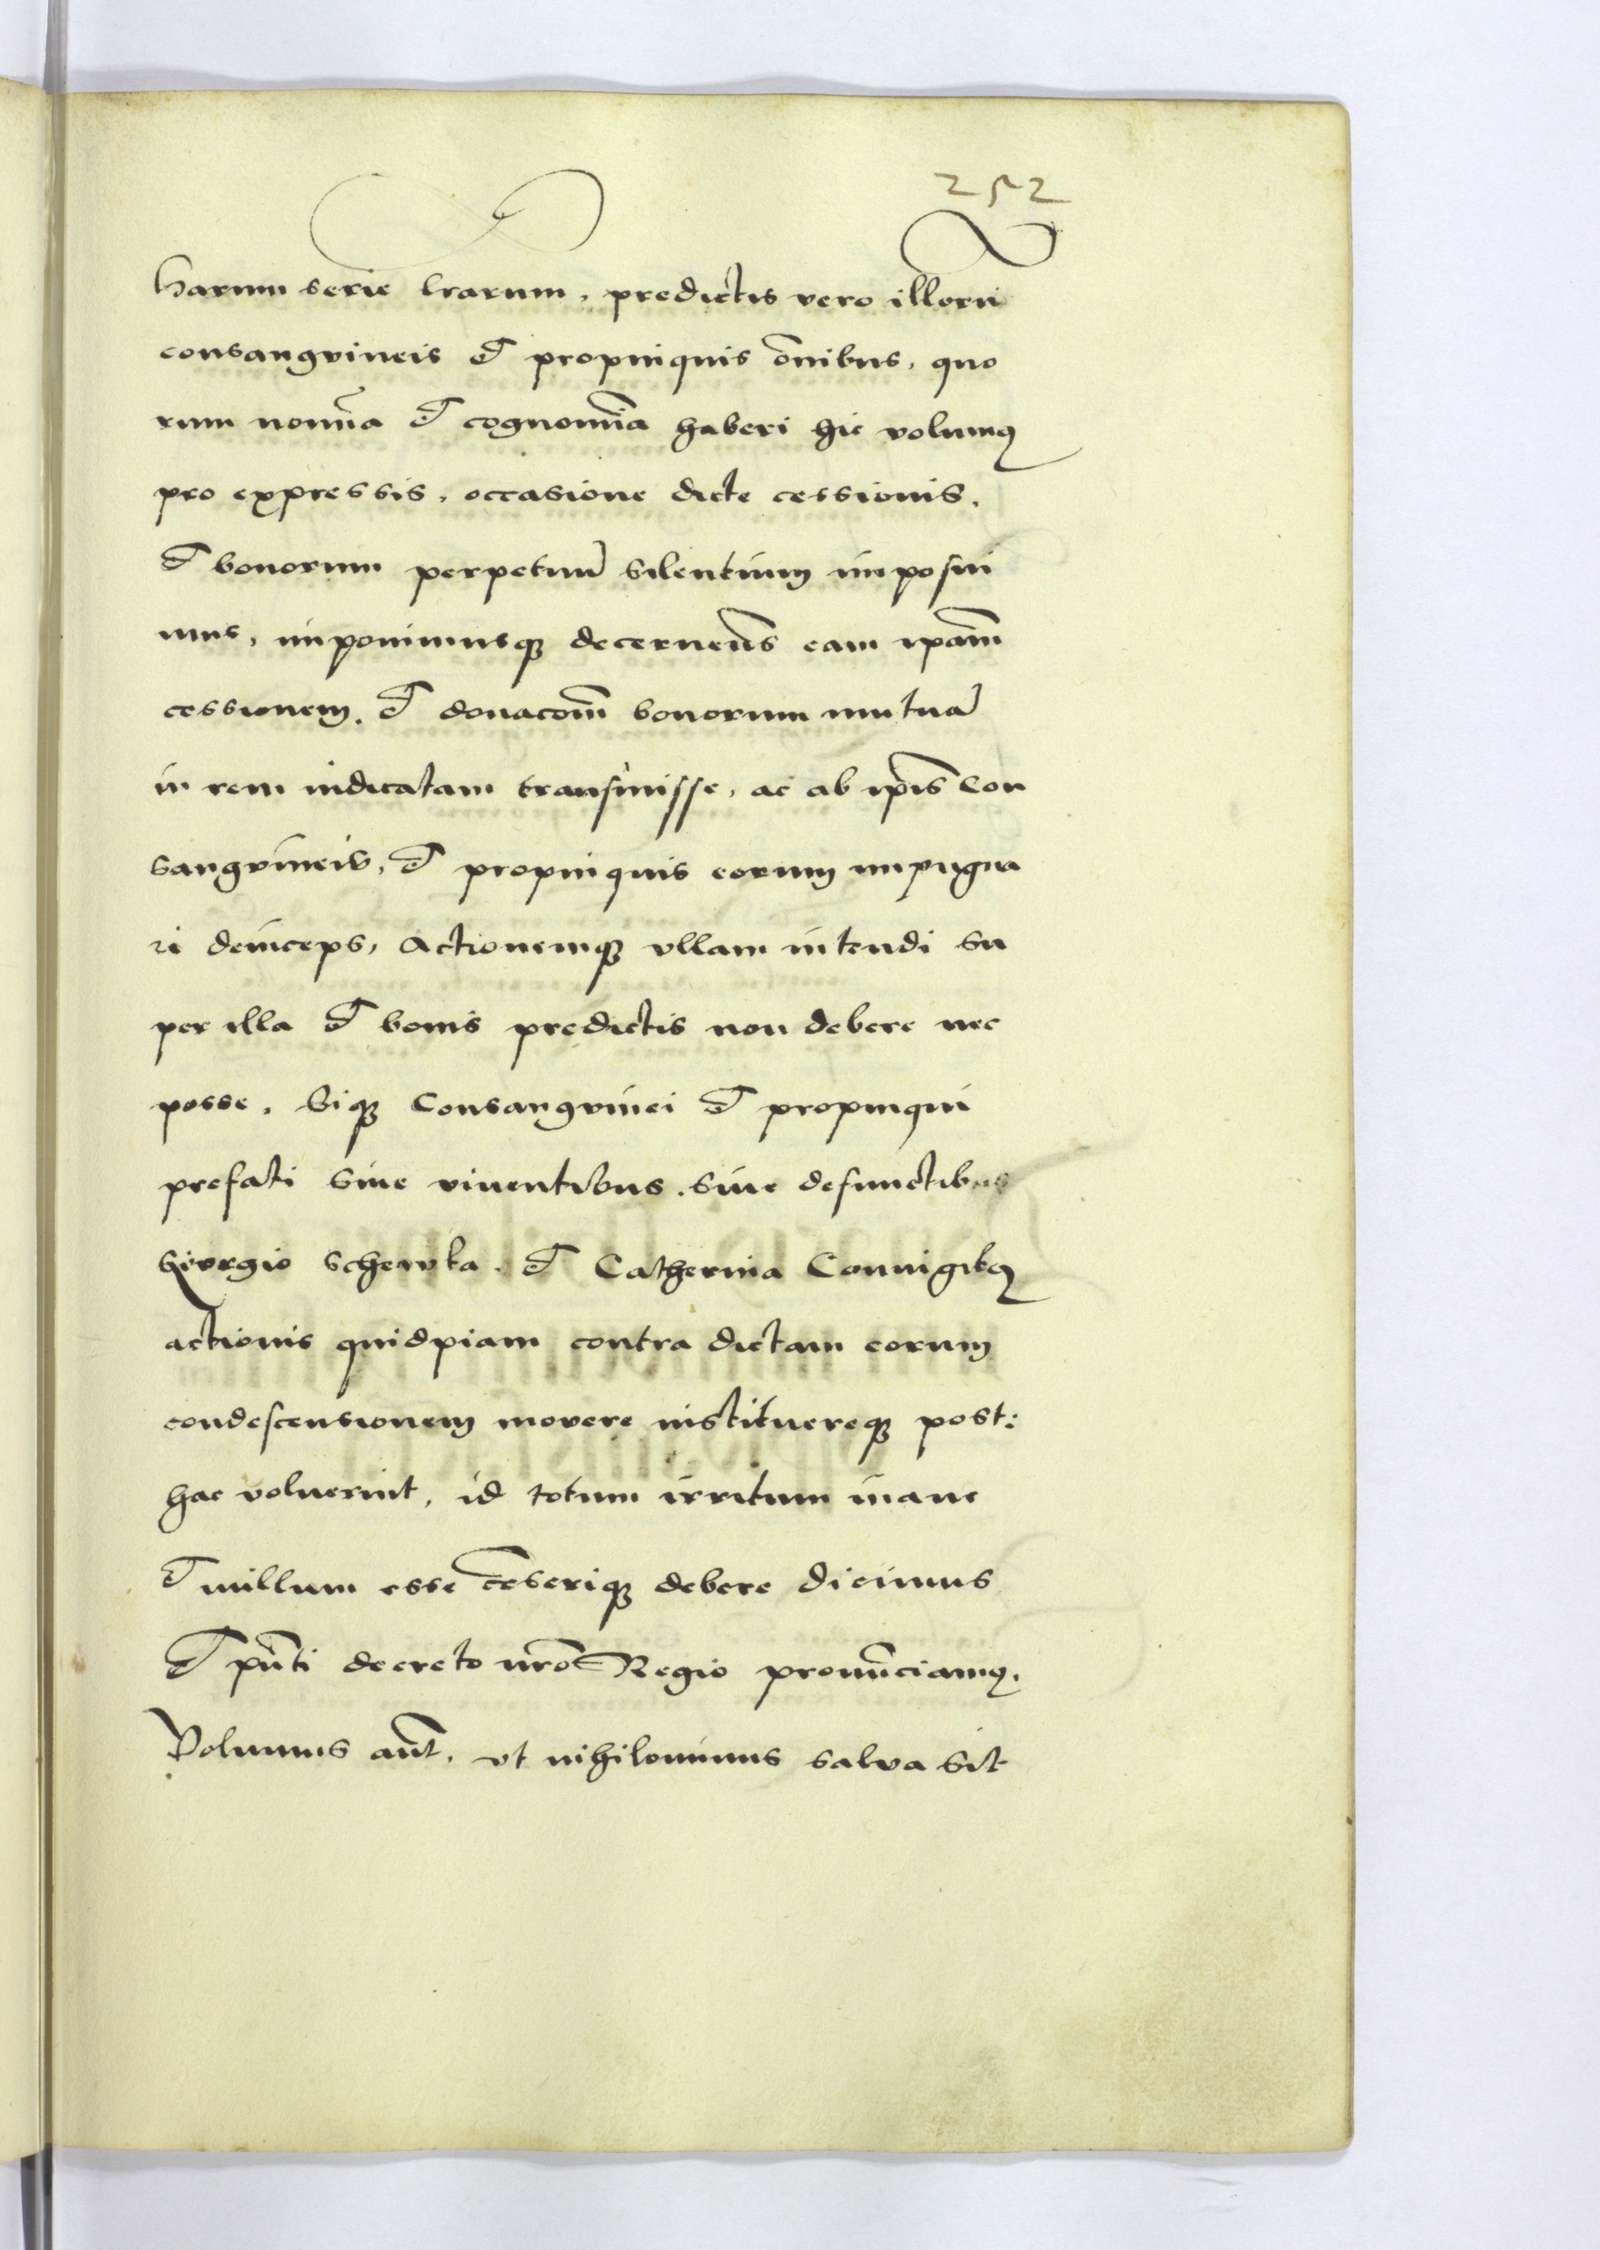 252
harum serie lrarum, predictis vero illorū
consangvineis et propinquis om̄ibus, quo
rum nomīa et cognomīa haberi hic volumꝯ
pro expressis, occasione dicte cessionis,
et bonorum perpetuū silentium imposui
mus, imponimusqꝫ decernen̄s eam ipam̄
cessionem, et donacōm bonorum mutuā
in rem iudicatam transiuisse, ac ab ip̄is Con
sangvineis, et propinquis eorum impugna
ri deinceps, Actionemqꝫ vllam intendi su
per illa et bonis predictis non debere nec
posse, Siqꝫ Consangvinei et propinqui
prefati siue viuentibus, siue defunctibus
Giorgio schewka, et Catherina Coniugibꝯ
actionis quidpiam contra dictam eorum
condescensionem movere instituereqꝫ post:
hac voluerint, id totum irritum inane
et nullum esse cēseriqꝫ debere dicimus
et pn̄ti decreto nr̄o Regio pronūnciamꝯ,
Volumus aūt, vt nihilominus salva sit